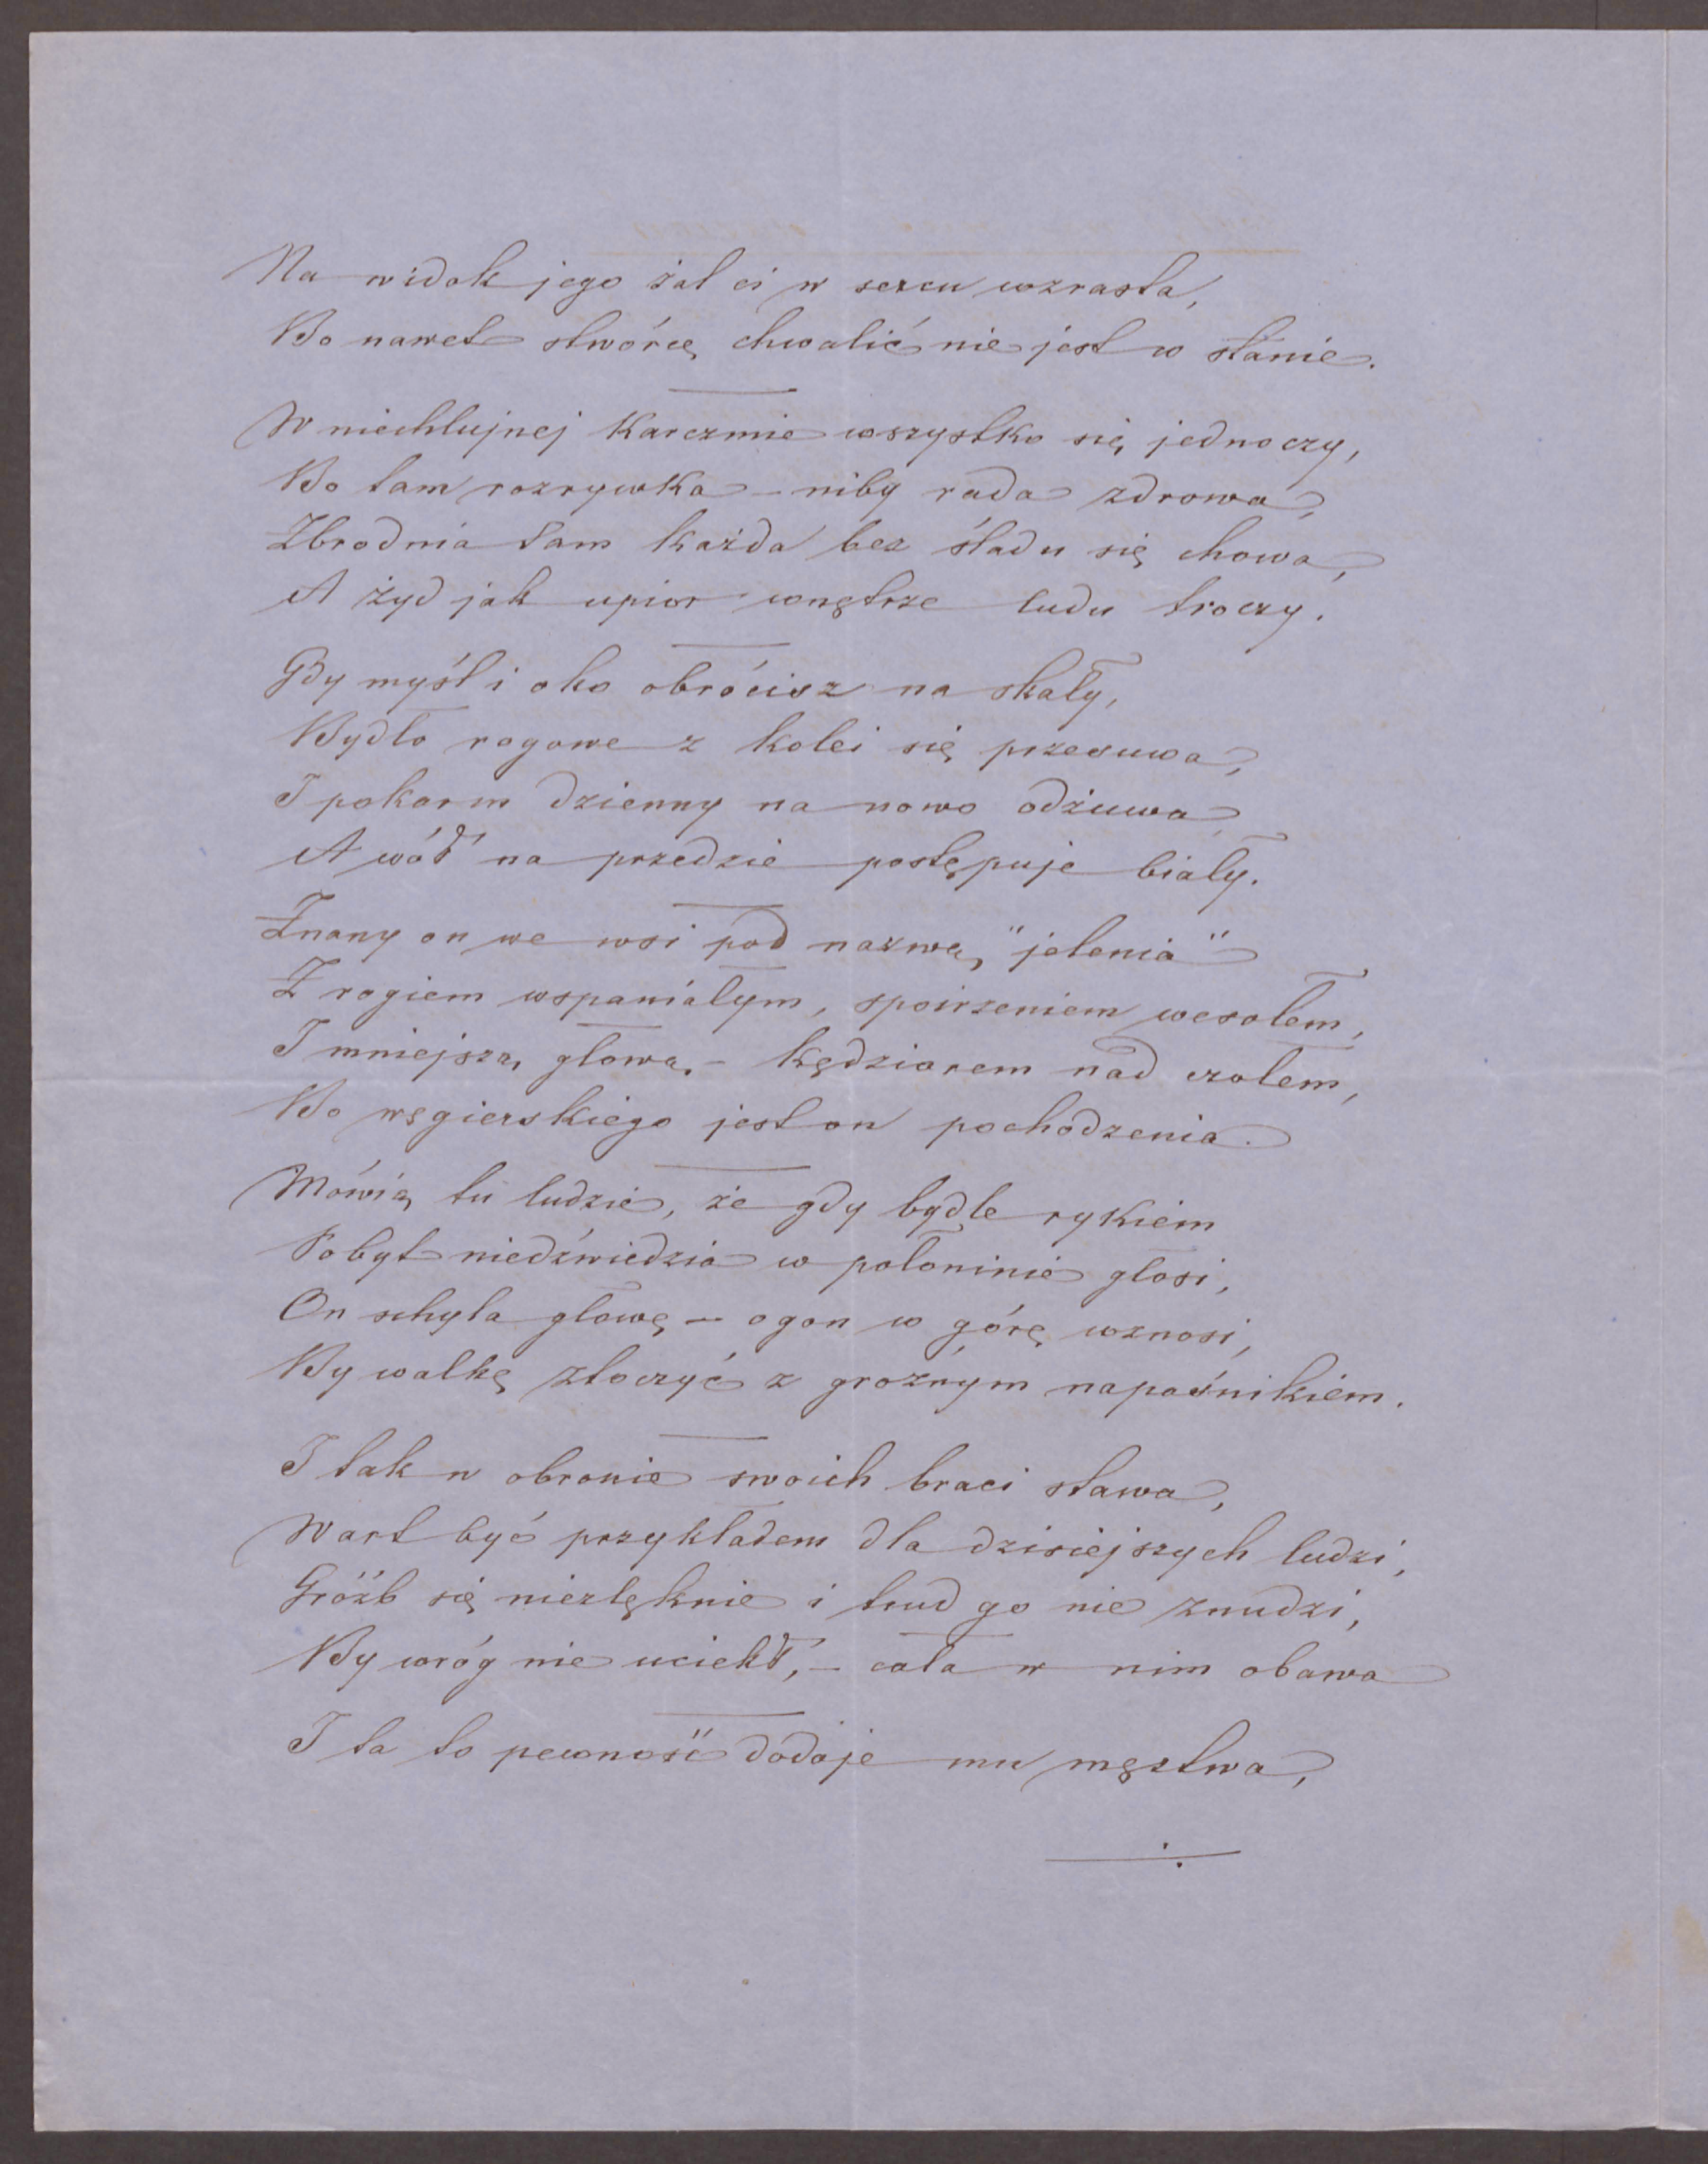 Na widok jego żal ci w sercu wzrasta,
Bo nawet stwórcę chwalić nie jest w stanie.
W niechlujnej karczmie wszystko się jednoczy,
Bo tam rozrywka – niby rada zdrowa,
Zbrodnia tam każda bez śladu się chowa,
A żyd jak upior wnętrze ludu troczy.
Gdy myśl i oko obrócisz na skały,
Bydło rogowe z kolei się przesuwa,
I pokarm dzienny na nowo odżuwa
A wół na przedzie postępuje biały.
Znany on we wsi pod nazwą "jelenia"
Z rogiem wspaniałym, spoirzeniem wesołem,
I mniejszą głową, – kędziorem nad czołem,
Bo węgierskiego jest on pochodzenia.
Mówią tu ludzie, że gdy bydle rykiem
Pobyt niedźwiedzia w połoninie głosi,
On schyla głowę – ogon w górę wznosi,
By walkę stoczyć z groźnym napaśnikiem.
I tak w obronie swoich braci stawa,
Wart być przykładem dla dzisiejszych ludzi,
Gróźb się niezlęknie i trud go nie znudzi,
By wróg nie uciekł, – cała w nim obawa
I ta to pewność dodaje mu męstwa,